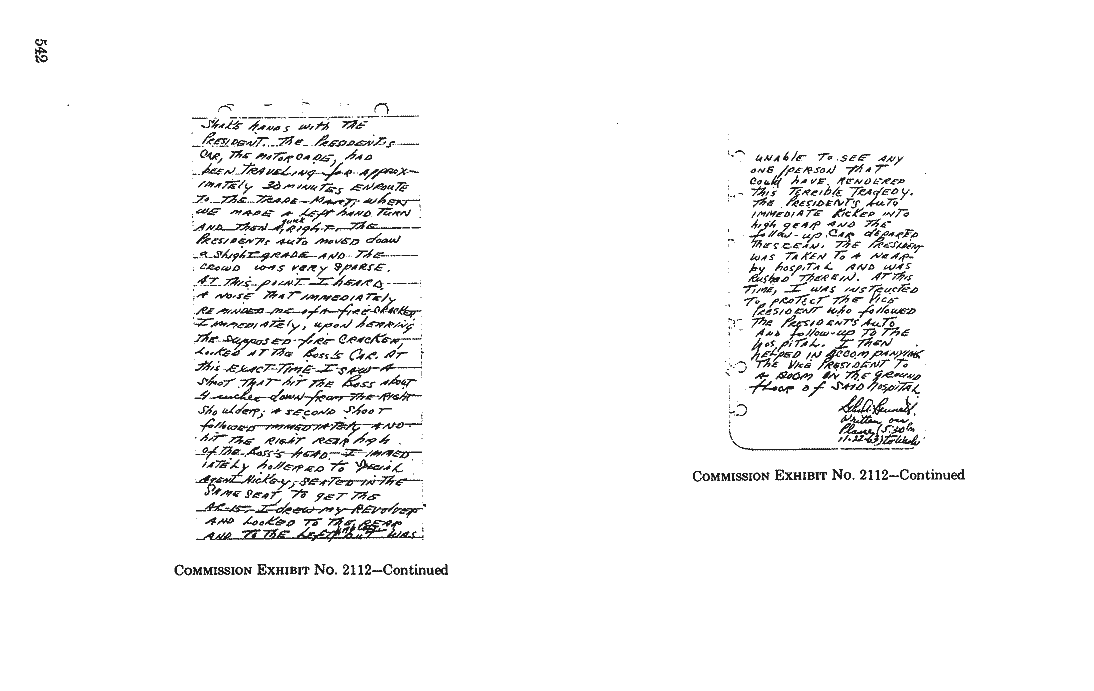 542
SHAKE HANDS WITH THE
PRESIDENT. THE PRESIDENT'S
CAR, THE MOTORCADE, HAD
BEEN TRAVELING FOR APPROX-
IMATELY 30 MINUTES ENROUTE
TO THE TRADE MART; WHEN
WE MADE A LEFT HAND TURN
AND THEN A quick RIGHT. THE
PRESIDENT'S AUTO MOVED down
A SLIGHT GRADE AND THE
CROWD WAS VERY SPARSE.
AT THIS POINT I HEARD
A NOISE THAT IMMEDIATELY
REMINDED ME of A fire CRACKER
I IMMEDIATELY, UPON HEARING
THE SUPPOSED fiRE CRACKER,
LOOKED AT THE BOSS'S CAR. AT
THIS EXACT TIME I SAW A
SHOOT THAT HIT THE BOSS ABOUT
4 inches down from THE RIGHT
SHOULDER; A SECOND SHOOT
followed IMMEDIATELY AND
HIT THE RIGHT REAR HIGH
of THE BOSS'S HEAD. I IMMED
IATELY HOLLERED TO SPECIAL
AGENT HICKEY, SEATED IN THE
SAME SEAT, TO GET THE
AR-15. I DREW MY REVOLVER
AND LOOKED TO THE REAR
AND TO THE LEFT BUT WAS
COMMISSION EXHIBIT NO. 2112—Continued
UNABLE TO SEE ANY
ONE/PERSON THAT
COULD HAVE RENDERED
THIS TERRIBLE TRAGEDY.
THE PRESIDENT'S AUTO
IMMEDIATE KICKED INTO
high GEAR AND THE
follow-up CAR DEPARED
THE SCEAN. THE PRESIDENT
WAS TAKEN TO A NEAR-
by HOSPITAL AND WAS
RUSHED THEREIN. AT THIS
TIME, I WAS INSTRUCTED
TO PROTECT THE VICE
PRESIDENT WHO followED
THE PRESIDENT'S AUTO
AND follow-up TO THE
HOSPITAL. I THEN
HELPED IN ACCOMPANYING
THE VICE PRESIDENT TO
A ROOM ON THE GROUND
floor of SAID HOSPITAL
Bennett
Written on
Plane 5:30
11-22-63
COMMISSION EXHIBIT NO. 2112—Continued